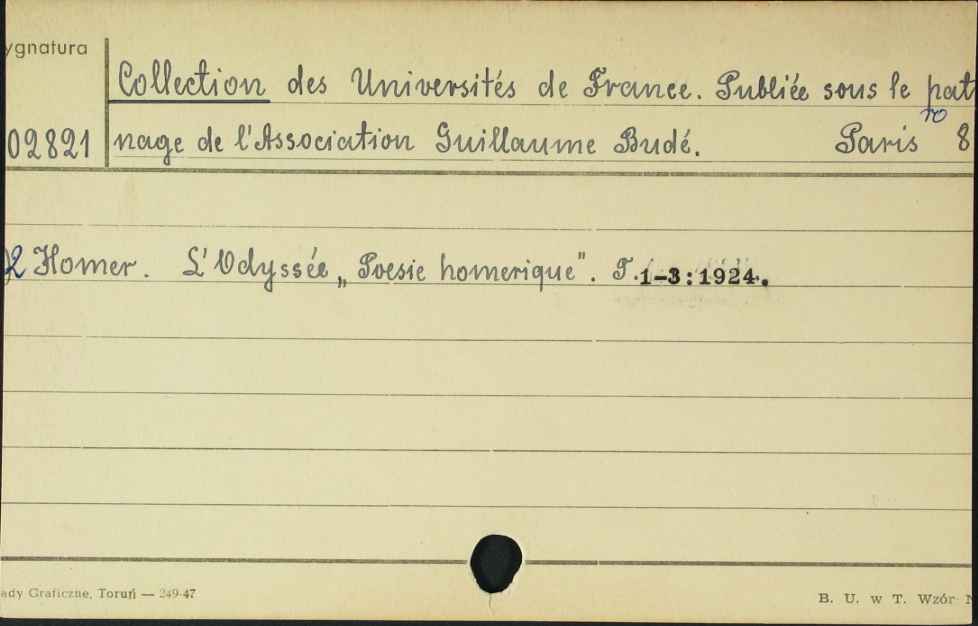 ygnatura
Collection des Universités de France. Publiée sous le pat
ro
02821 nage de l'Association Guillaume Budé. Paris 8
2 Homer. L'Odyssée „Poesie homerique". T. 1-3:1924.
ady Graficzne, Toruń — 249-47
B. U. w T. Wzór N